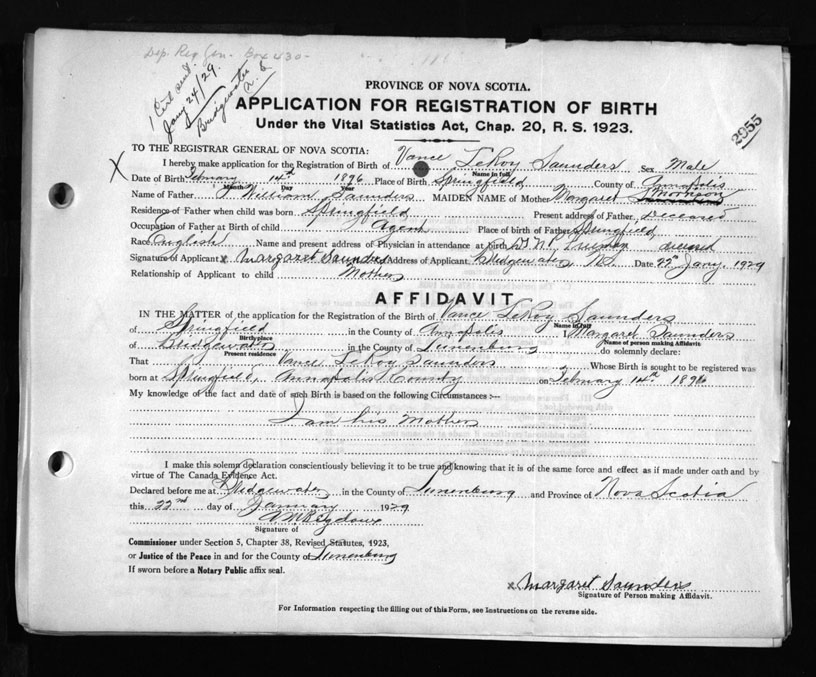 Dep Reg Gen - Box 430 -
1 Cert sent
Jany 24/29.
Bridgewater
N.S.
PROVINCE OF NOVA SCOTIA.
APPLICATION FOR REGISTRATION OF BIRTH
Under the Vital Statistics Act, Chap. 20, R. S. 1923.
2955
TO THE REGISTRAR GENERAL OF NOVA SCOTIA:
X
I hereby make application for the Registration of Birth of Vance LeRoy Saunders Sex Male
Name in full
Date of Birth February 14th 1896 Place of Birth Springfield County of Annapolis
Month Day Year
Name of Father William Saunders MAIDEN NAME of Mother Margaret Morrison
Residence of Father when child was born Springfield Present address of Father Deceased
Occupation of Father at Birth of child Agent Place of birth of Father Springfield
Race English Name and present address of Physician in attendance at birth deceased
Signature of Applicant x Margaret Saunders Address of Applicant Bridgewater N.S. Date 22nd Jany, 1929
Relationship of Applicant to child Mother
AFFIDAVIT
IN THE MATTER of the application for the Registration of the Birth of Vance LeRoy Saunders
Name in full
of Springfield in the County of Annapolis I Margaret Saunders
Birthplace Name of person making Affidavit
of Bridgewater in the County of Lunenburg do solemnly declare:
Present residence
That Vance LeRoy Saunders Whose Birth is sought to be registered was
born at Springfield, Annapolis County on February 14th 1896
My knowledge of the fact and date of such Birth is based on the following Circumstances :—
I am his Mother
I make this solemn declaration conscientiously believing it to be true and knowing that it is of the same force and effect as if made under oath and by
virtue of The Canada Evidence Act.
Declared before me at Bridgewater in the County of Lunenburg and Province of Nova Scotia
this 22nd day of January 1929
Signature of
Commissioner under Section 5, Chapter 38, Revised Statutes, 1923,
or Justice of the Peace in and for the County of Lunenburg
If sworn before a Notary Public affix seal.
x Margaret Saunders
Signature of Person making Affidavit.
For Information respecting the filling out of this Form, see Instructions on the reverse side.